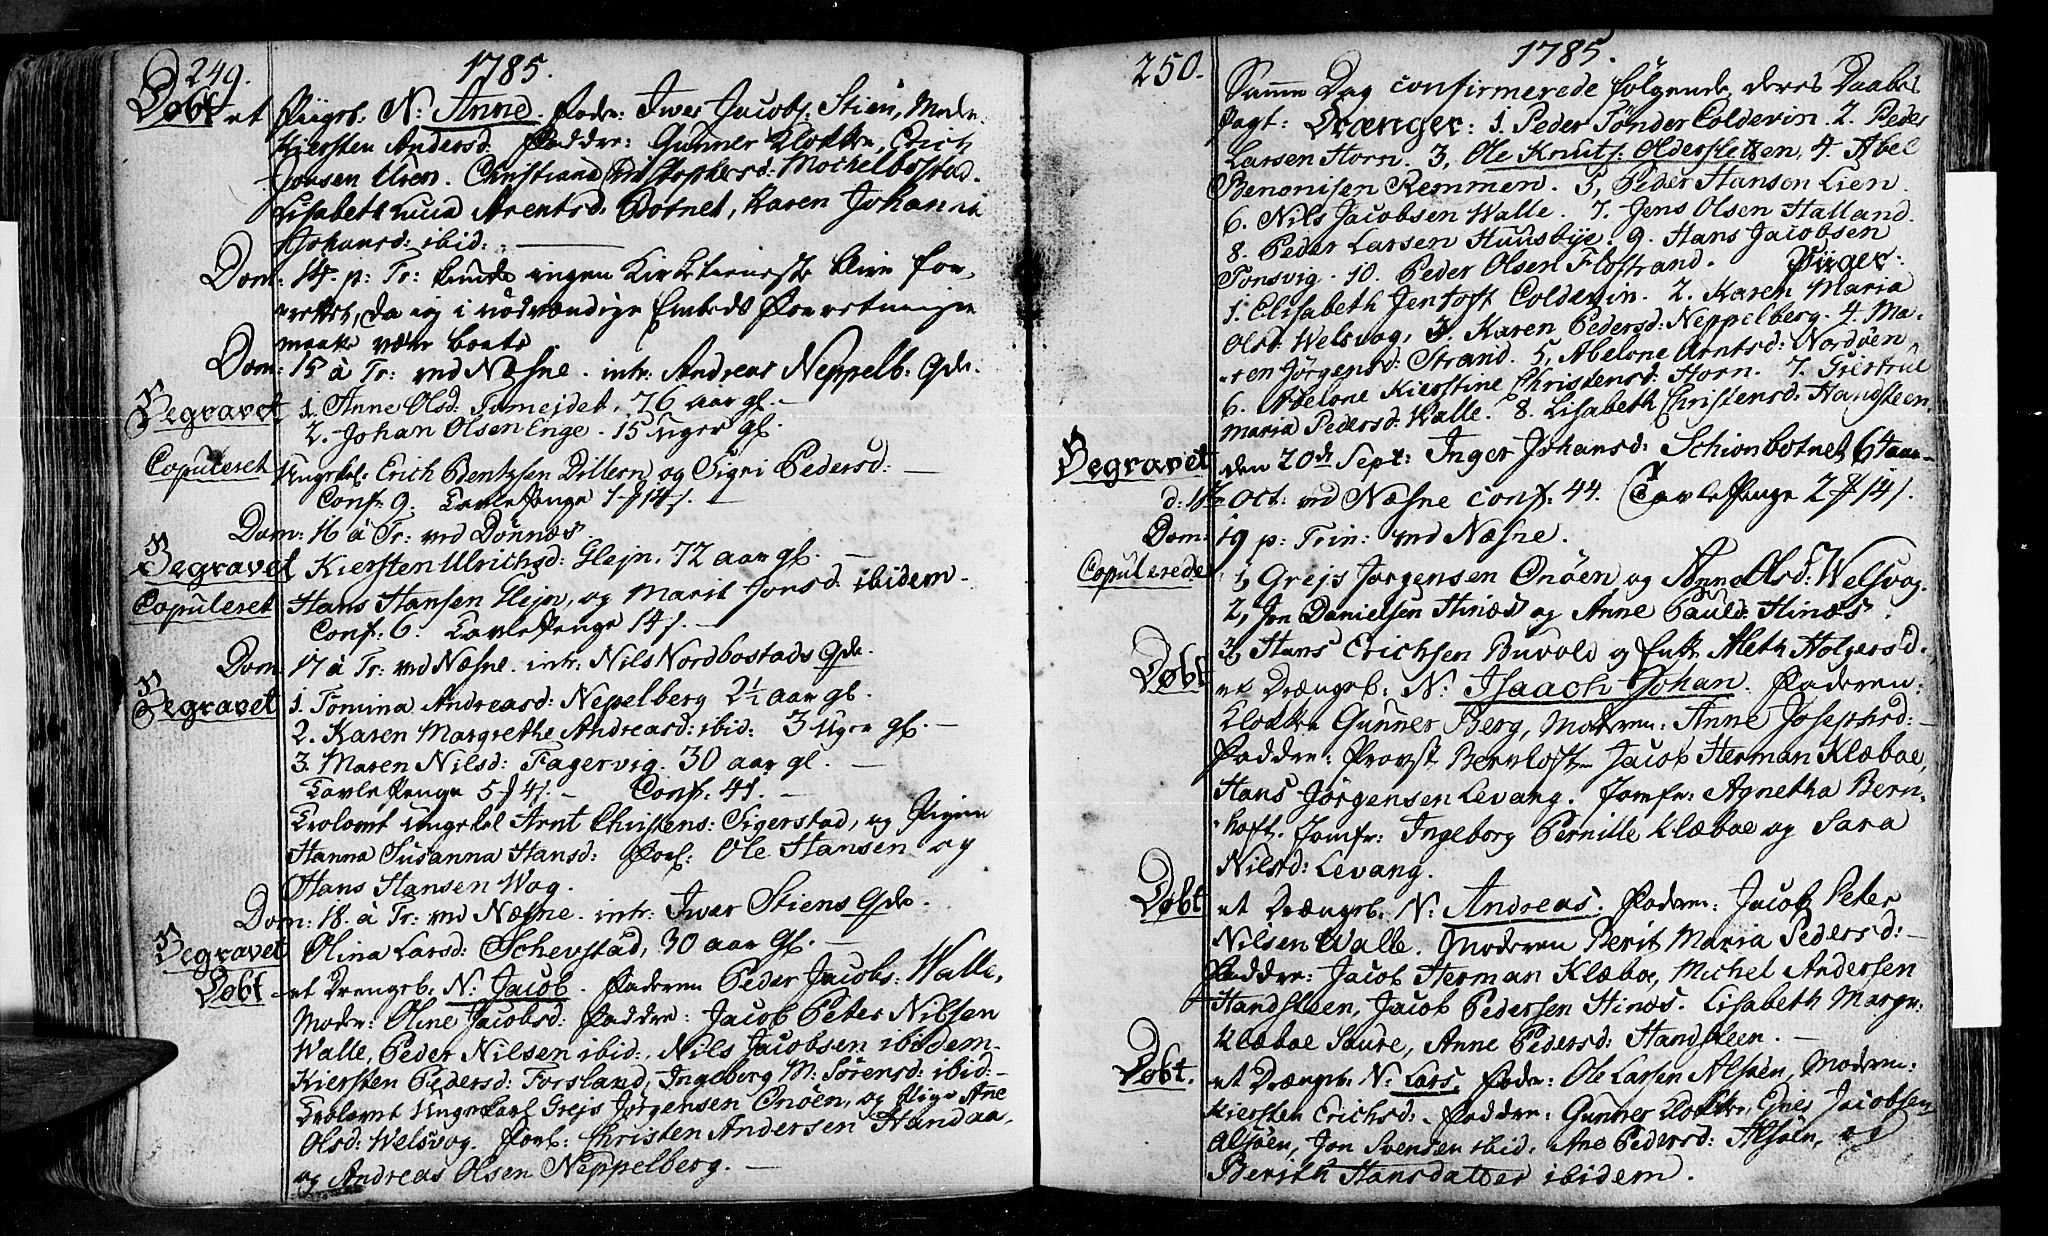 249. 1785.
Døbt et Piigeb. N: Anne. Fader: Iwer Jacobs: Stien, Moder:
Kiersten Andersd: Faddre: Gunner Klokker, Erich
Jonsen Uren. Christiana Christophersd: Mochelbostad.
Lisabeth Lucia Arentsd: Botnet, Karen Johanna
Johansd: ibid:
Dom: 14. p: Tr: kunde ingen Kirketieneste blive for-
rettet, da jeg i nødvændige Embeds Forretninger
maatte være borte
Dom: 15 à Tr: ved Næsne. intr: Andreas Neppelb: Qde.
Begravet 1. Anne Olsd: Tomejdet, 76 aar gl. —
2. Johan Olsen Enge. 15 uger gl.
Copuleret Ungekel: Erich Bentzsen Dillern og Sigri Pedersd: —
Conf: 9. TavlePenge 1 14 s. —
Dom: 16 à Tr: ved Dønnæs
Begravet Kiersten Ulrichsd: Glejn, 72 aar gl. —
Copuleret Hans Hansen Glejn, og Marit Jonsd: ibidem —
Conf: 6. TavlePenge 14 s. —
Dom: 17 à Tr: ved Næsne. intr: Nils Nordbostads Qde.
Begravet 1. Tomina Andreasd: Nepelberg 2½ aar gl.
2. Karen Margrethe Andreasd: ibid: 3 Uger gl. —
3. Maren Nilsd: Fagervig. 30 aar gl. —
TavlePenge 5 4 s. — Conf: 41. —
Trolovet Ungekel Arnt Christens: Sigerstad, og Pigen
Hanna Susanna Hansd: Forl: Ole Hansen og
Hans Hansen Wog.
Dom: 18. à Tr: ved Næsne. intr: Iwar Stiens Qde.
Begravet Olina Larsd: Schevstad, 30 aar gl. —
Døbt et Drengeb. N: Jacob. Faderen Peder Jacobs: Walle,
Moder: Oline Jacobsd: Faddre: Jacob Peter Nilsen
Walle, Peder Nilsen ibid:, Nils Jacobsen ibidem-
Kiersten Pedersd: Forsland, Ingeborg M: Sørensd: ibid: —
Trolovet Ungekarl Grejs Jørgensen Onøen, og Pige Ane
Olsd: Welsvog. Forl: Christen Andersen Handaa,
og Andreas Olsen Neppelberg. —
250. 1785.
Samme Dag confirmerede følgende deres Daabes
Pagt: Drænger: 1. Peder Tønder Coldevin. 2. Peder
Larsen Horn. 3, Ole Knuts: Oldersletten, 4. Abel
Benonisen Remmen. 5, Peder Hansen Lien.
6. Nils Jacobsen Walle. 7. Jens Olsen Halland.
8. Peder Larsen Huusbye. 9. Hans Jacobsen
Tonsvig. 10. Peder Olsen Flostrand. Piiger:
1. Elisabeth Jentoft Coldevin. 2. Karen Maria
Olsd: Welsvog, 3. Karen Pedersd: Neppelberg. 4. Ma-
ren Jørgensd: Strand. 5, Abelone Arntsd: Nordøen
6. Abelone Kierstine Christensd: Horn. 7. Giertrue
Maria Pedersd: Walle. 8. Lisabeth Christensd: Handsteen
Begravet den 20de Sept: Inger Johansd: Schionbotnet, 64 aar —
d: 1ste Oct: ved Næsne conf: 44. TavlePenge 2 14 s.
Dom: 19 p: Trin: ved Næsne.
Copulerede 1, Grejs Jørgensen Onøen og Anne Olsd: Welsvog.
2, Jon Danielsen Hinæs og Anne Pauls: Hinæs.
3, Hans Erichsen Buvold og Enk: Aleth Holgersd.
Døbt et Drængeb. N: Isaach Johan. Faderen:
Klokker Gunner Berg, Moderen: Anne Josephsd: —
Faddre: Provst Bernhoft, Jacob Herman Klæboe,
Hans Jørgensen Levang. Jomfr: Agnetha Bern-
hoft. Jomfr: Ingeborg Pernille Klæboe og Sara
Nilsd: Levang.
Døbt et Drængeb. N: Andreas. Faderen: Jacob Peter
Nilsen Walle. Moderen Berit Maria Pedersd: —
Faddre: Jacob Herman Klæboe, Michel Andersen
Handsteen, Jacob Pedersen Hinæs. Lisabeth Margr:
Klæboe Saure, Anne Pedersd: Handsteen. —
Døbt. et Drængeb. N: Lars. Fader: Ole Larsen Alsøen, Moderen:
Kiersten Erichsd: Faddre: Gunner Klokker, Ejnes Jacobsen
Alsøen, Jon Svensen ibid: Ane Pedersd: Alsøen, og
Berith Hansdatter ibidem.